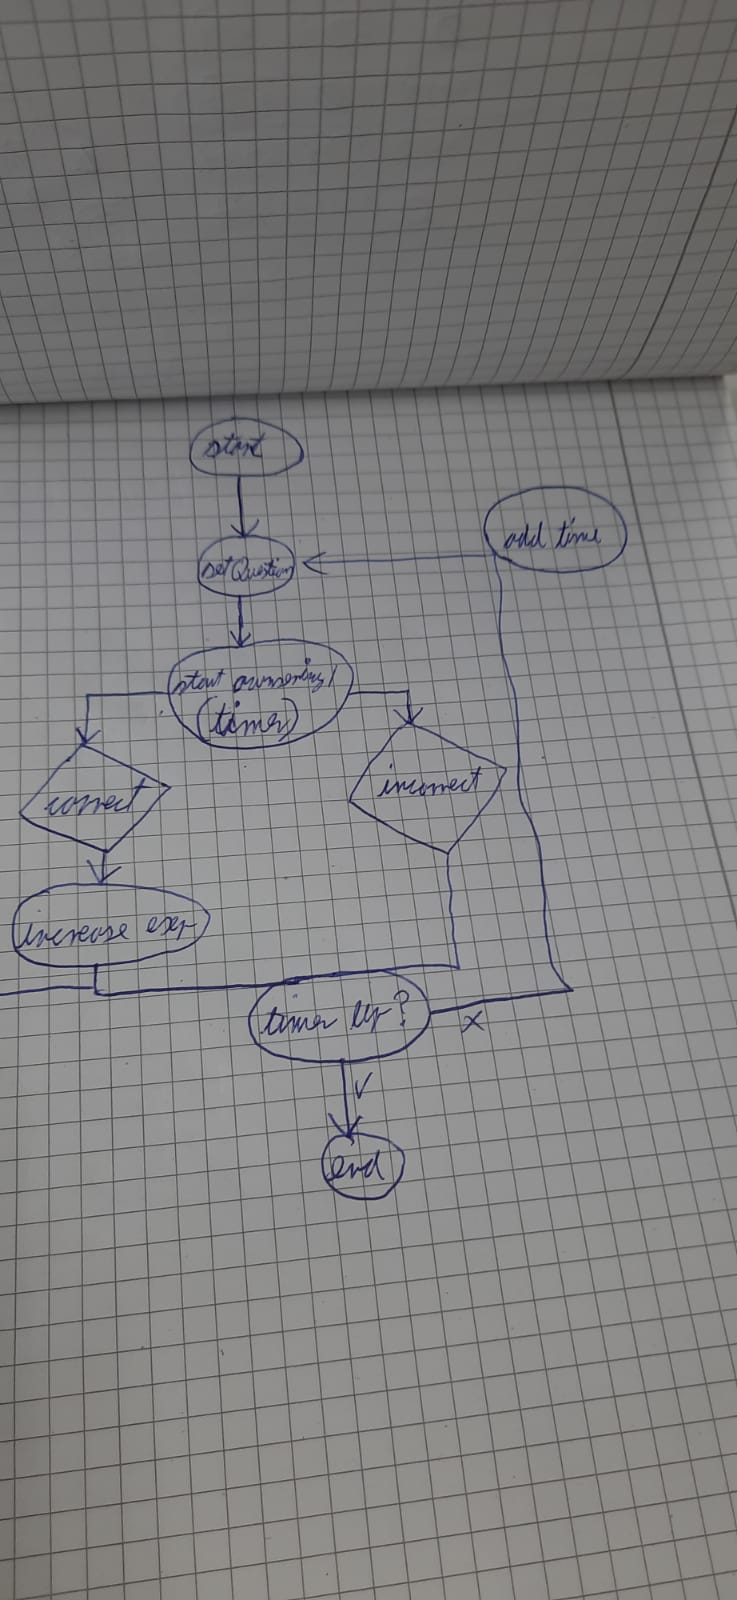 start
add time
set Question
start
(timer)
correct
incorrect
increase exp
timer up?
x
v
end